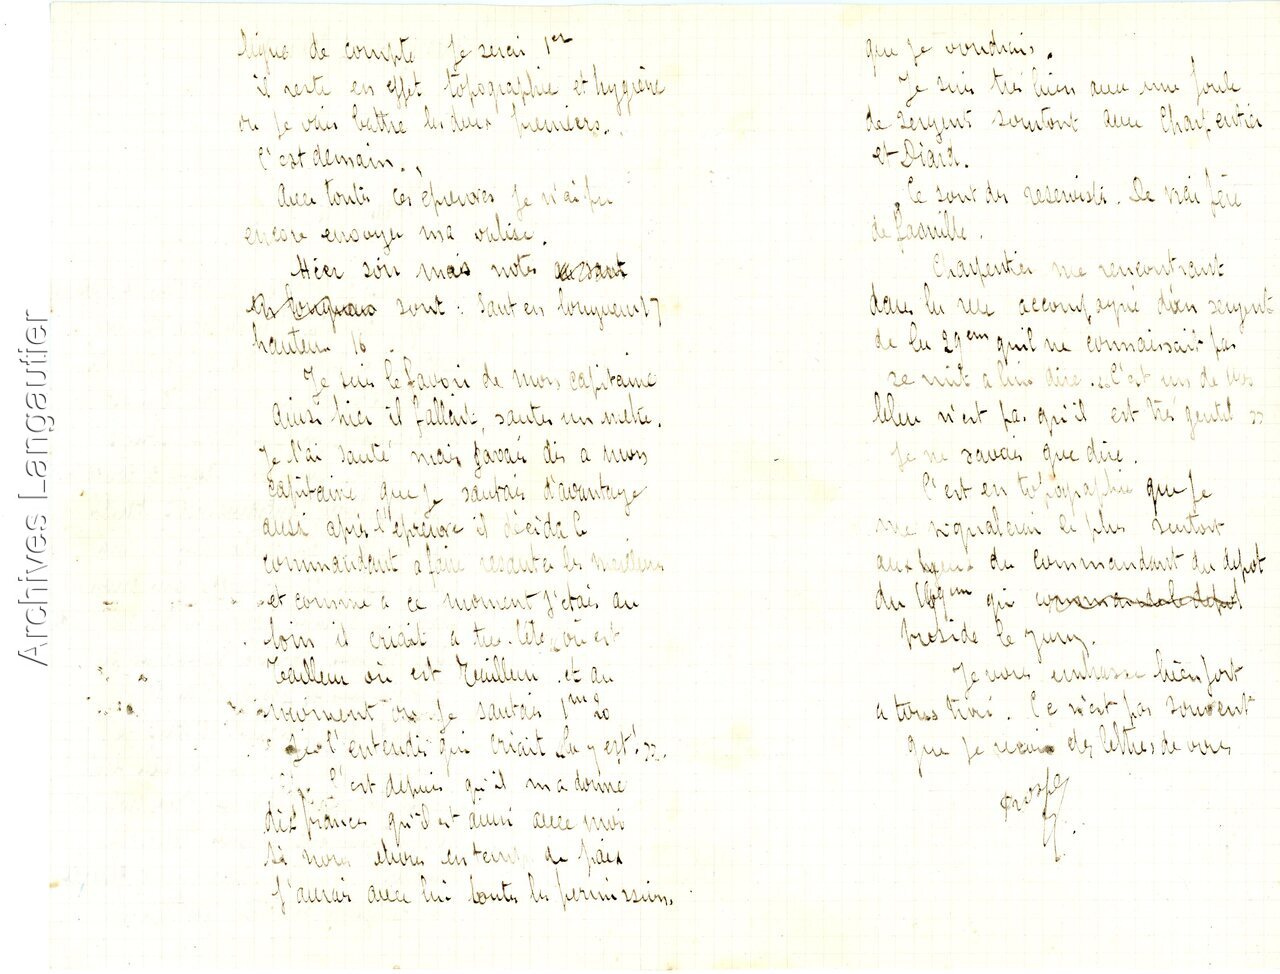 ligne de compte je serai 1er
il reste en effet topographie et hygiène
ou je vais battre les deux premiers.
C'est demain.
Avec toutes ces épreuves je n'ai pu
encore envoyer ma valise.
Hier soir mais notes
sont : Saut en longueur 17
hauteur 16
Je suis le favori de mon capitaine
Ainsi hier il fallait sauter un mètre.
Je l'ai sauté mais j'avais dis a mon
capitaine que je sautais d'avantage
aussi après l'épreuve il décida le
commandant a faire resauter les meilleurs
et comme a ce moment j'étais au
loin il criait a tue tête où est
Teilleur où est Teilleur. et au
moment ou je sautais 1m20
je l'entendis qui criait "Il y est! ".
C'est depuis qu'il m'a donné
dix francs qu'il est ainsi avec moi
Si nous étions en temps de paix
J'aurais avec lui toutes les permissions
que je voudrais.
Je suis très bien avec une foule
de sergent surtout avec Charpentier
et Diard.
Ce sont des reservistes. De vrai père
de famille.
Charpentier me rencontrant
dans la rue accompagné d'un sergent
de la 29em qu'il ne connaissait pas
se mit a lui dire. "C'est un de vos
bleu n'est pas qu'il est très gentil "
Je ne savais que dire.
C'est en topographie que je
me signalerai le plus surtout
aux yeux du commandant du depot
du qui
préside le jury.
Je vous embrasse bien fort
a tous trois. Ce n'est pas souvent
que je reçois des lettres de vous
Prosper
Archives Langautier